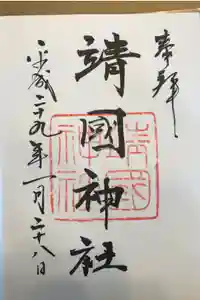 奉拝
靖國神社
平成二十九年一月二十八日
靖國神社